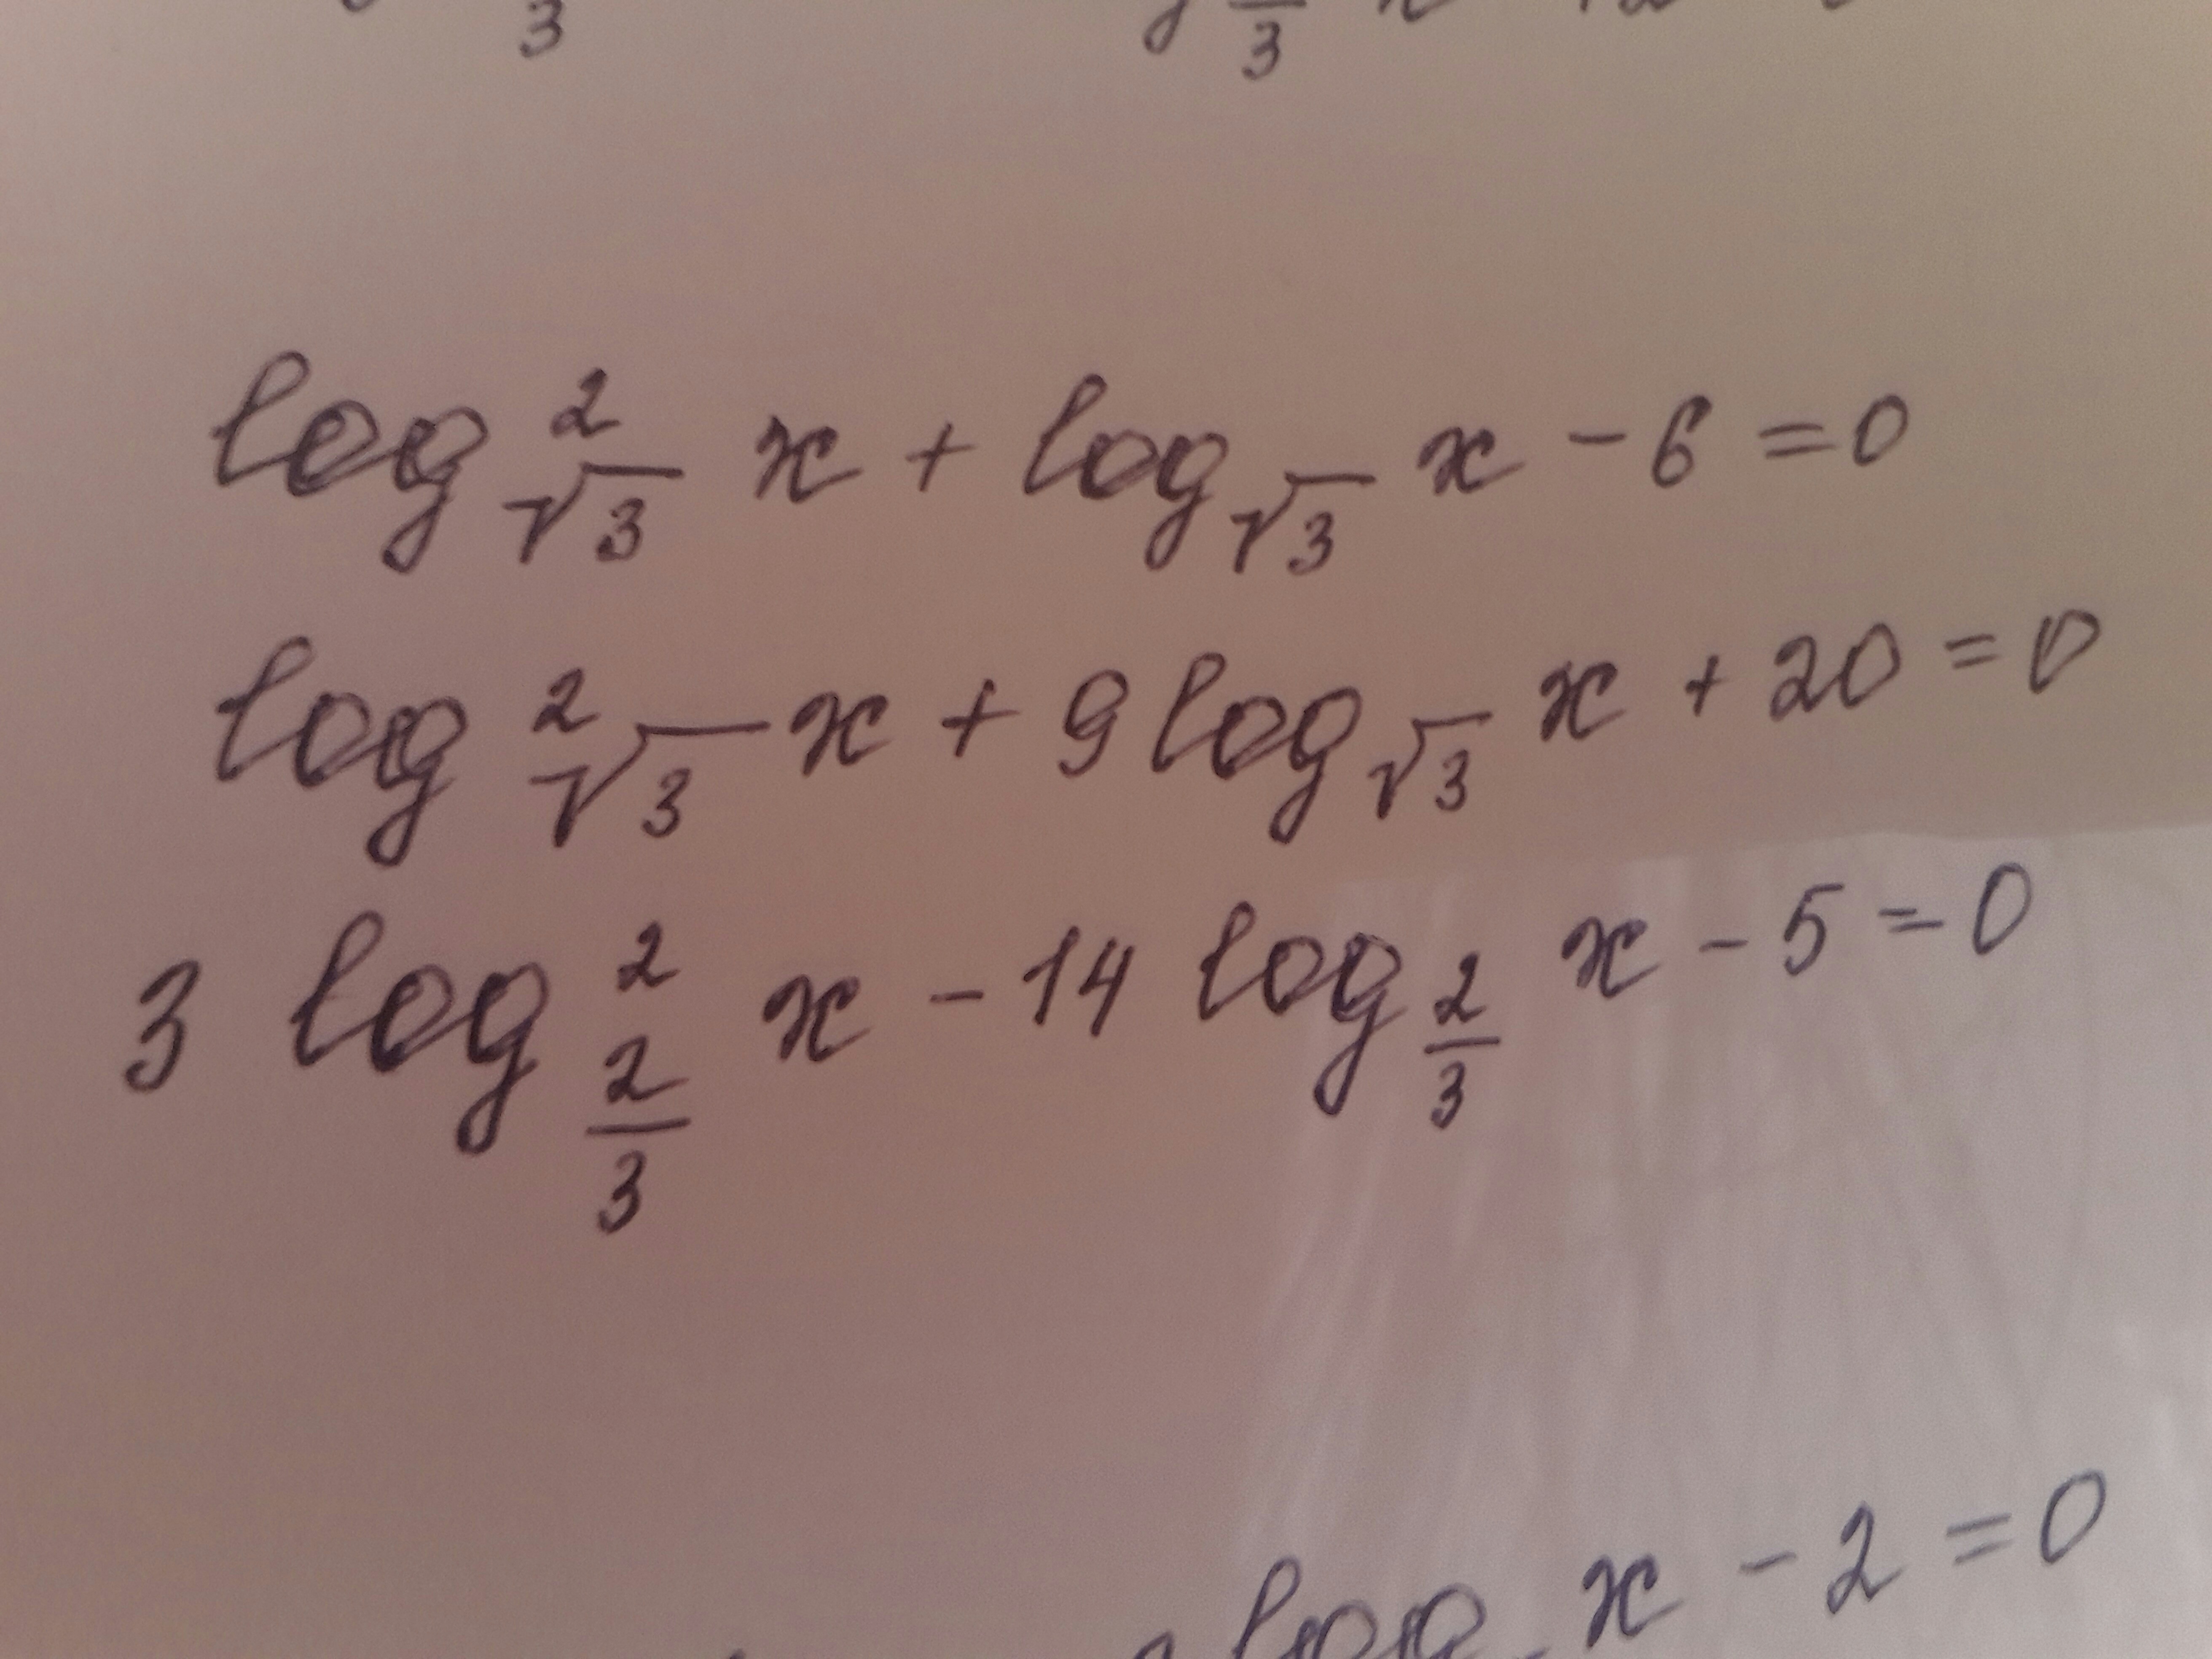 3 3
log²_√3 x + log_√3 x - 6 = 0
log²_√3 x + 9 log_√3 x + 20 = 0
3 log²_2/3 x - 14 log_2/3 x - 5 = 0
log x - 2 = 0